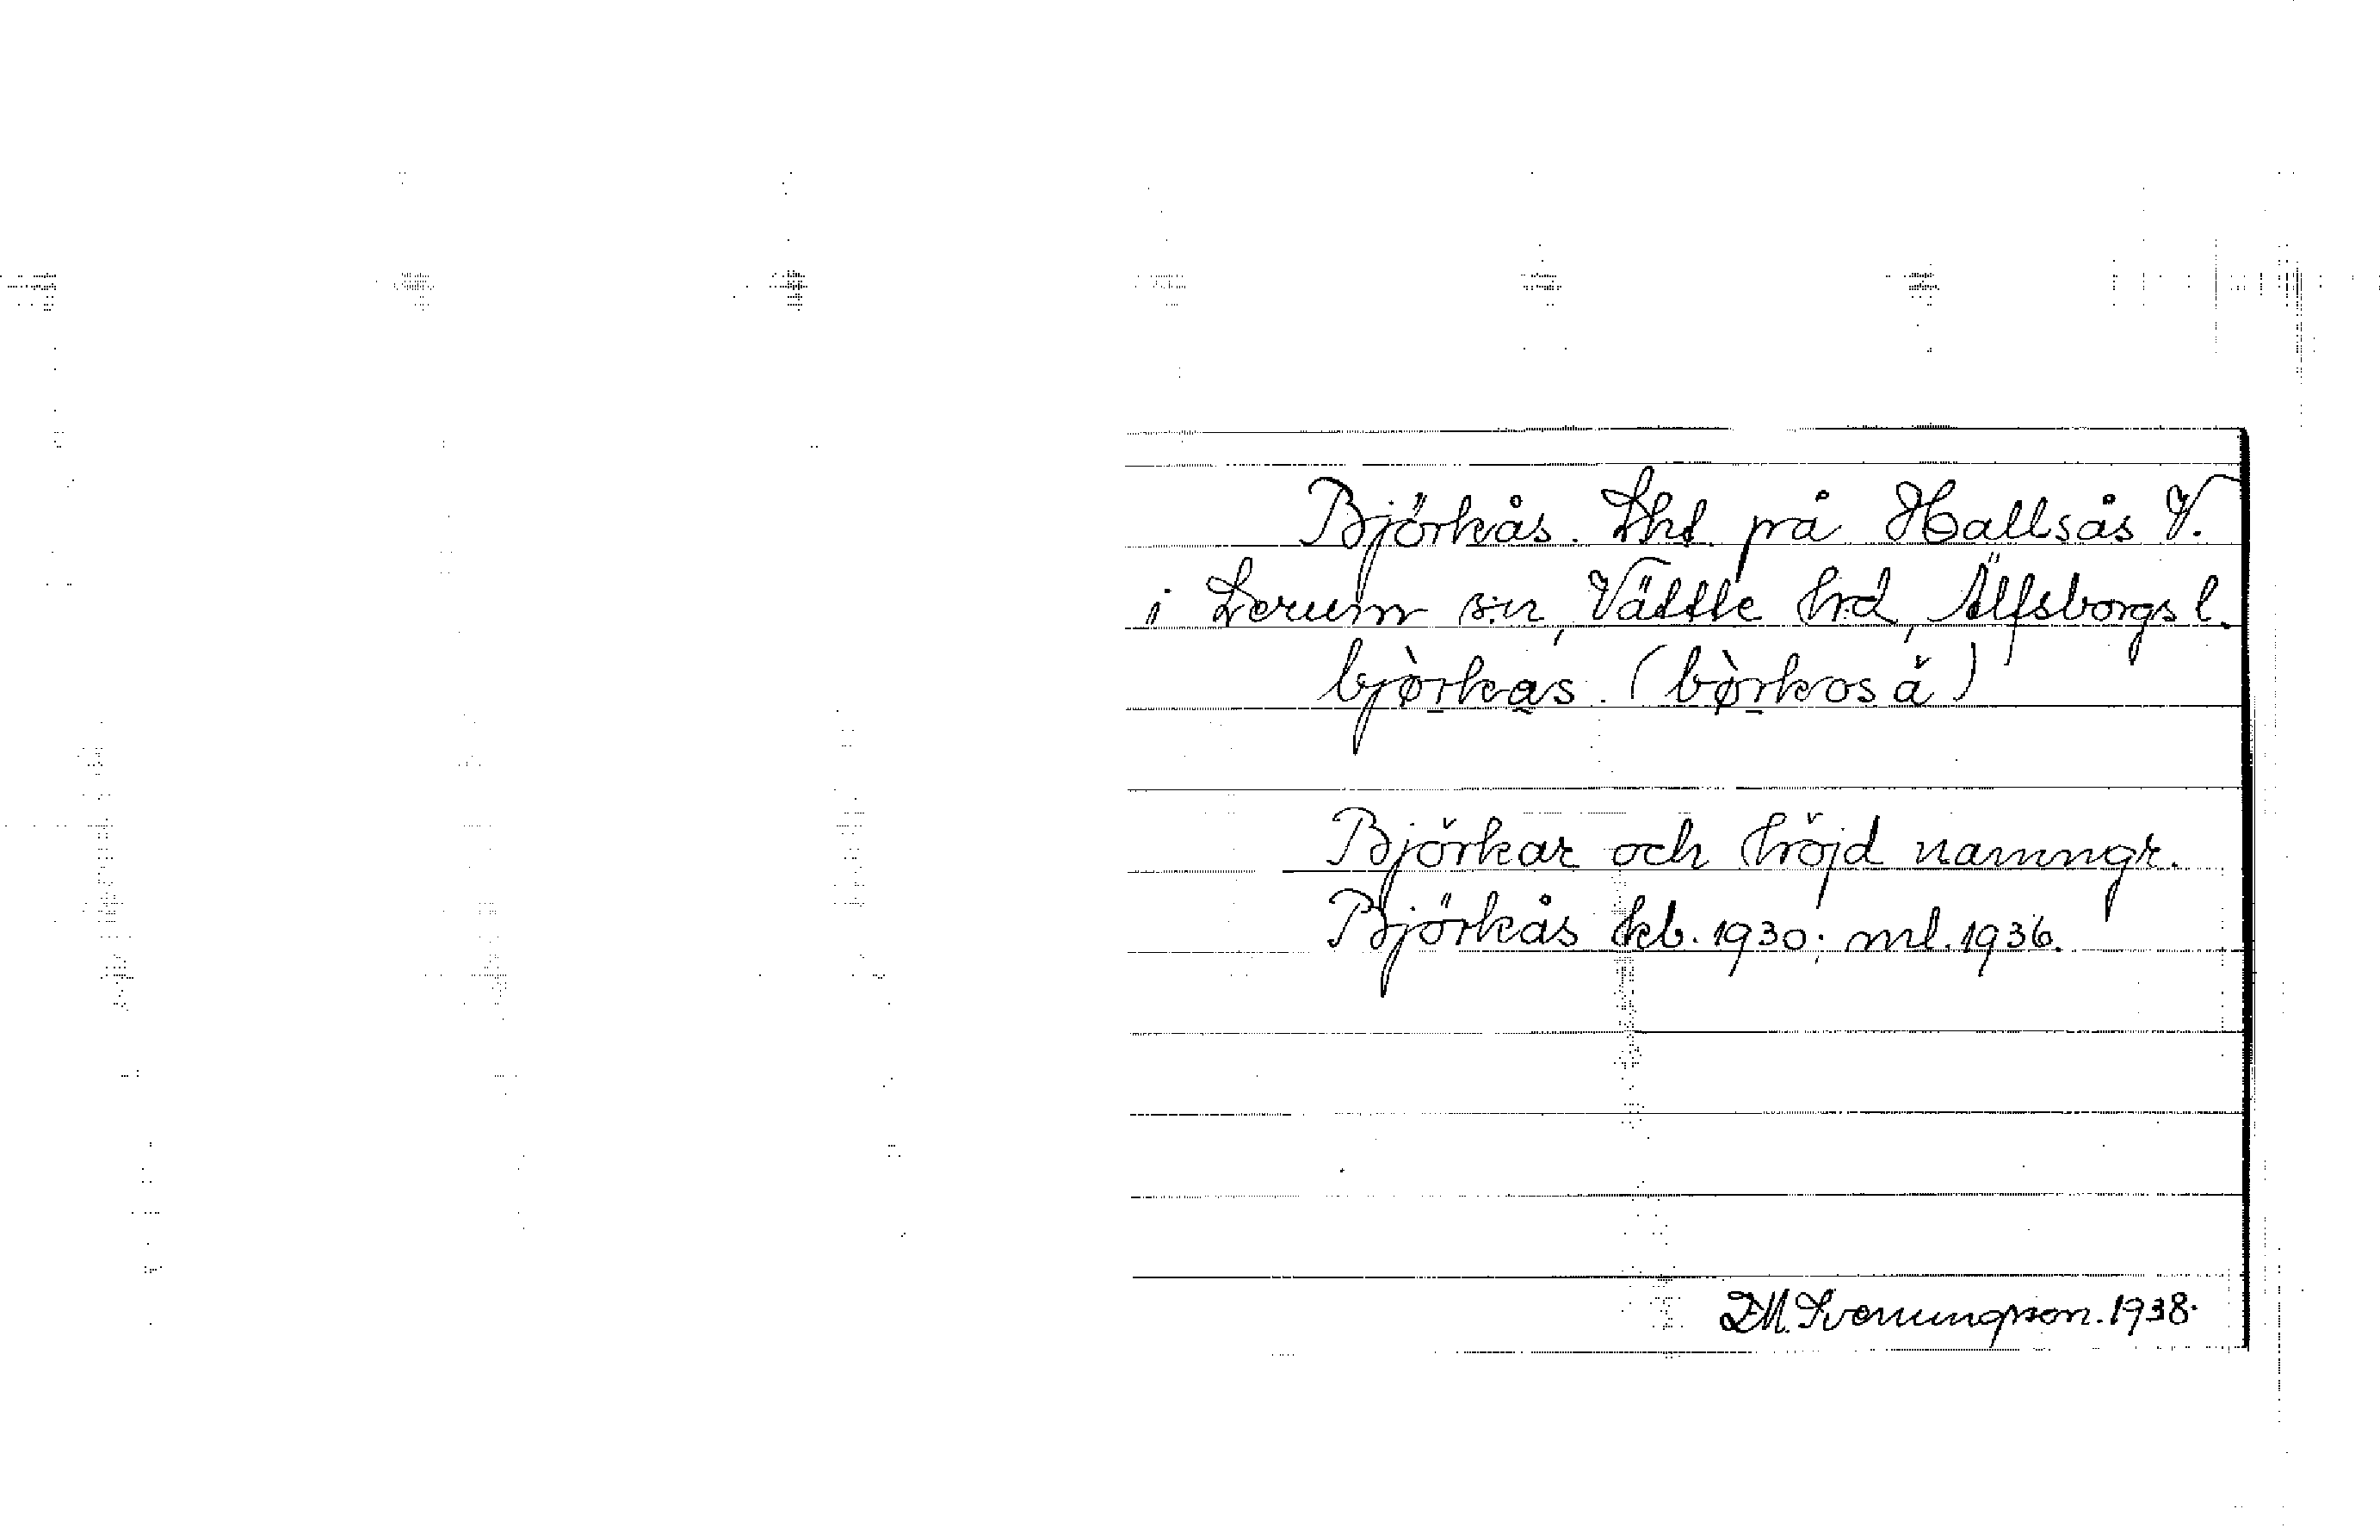 Björkås. Lht. på Hallsås V.
i Lerum sn, Vättle hd, Älfsborgs l.
bjòrkas. (bòrkos å)
Björkar och höjd namngr.
Björkås kb. 1930; ml. 1936.
D.M. Svenungsson. 1938.